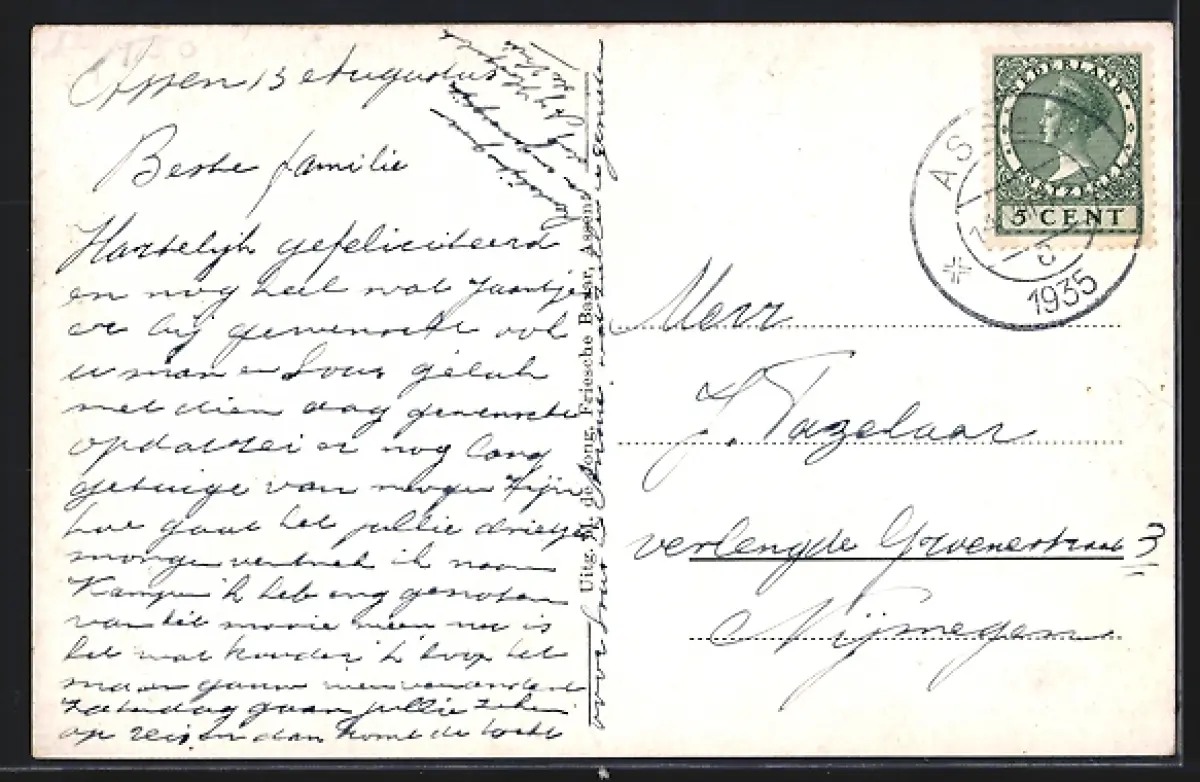 Assen 13 Augustus
Beste familie
Hartelijk gefeliciteerd
en nog heel wat Jaartjes
er bij gewenscht ook
u man en Loes geluk
met dien dag gewenscht
opdat zei er nog lang
getuige van mogen zijn
hoe gaat het jullie drietjes
morgen vertrek ik naar
Kampen ik heb erg genoten
van het mooie weer nu is
het wat kouder ik hoop het
maar gauw weer veranderd
Zaterdag gaan jullie zeker
op reis en dan komt de
Uitg. H. de Jong, Friesche Bazar, Assen.
NEDERLAND
5 CENT
AS
1935
Herr
J. Tazelaar
verlengde Groenestraat 3
Nijmegen